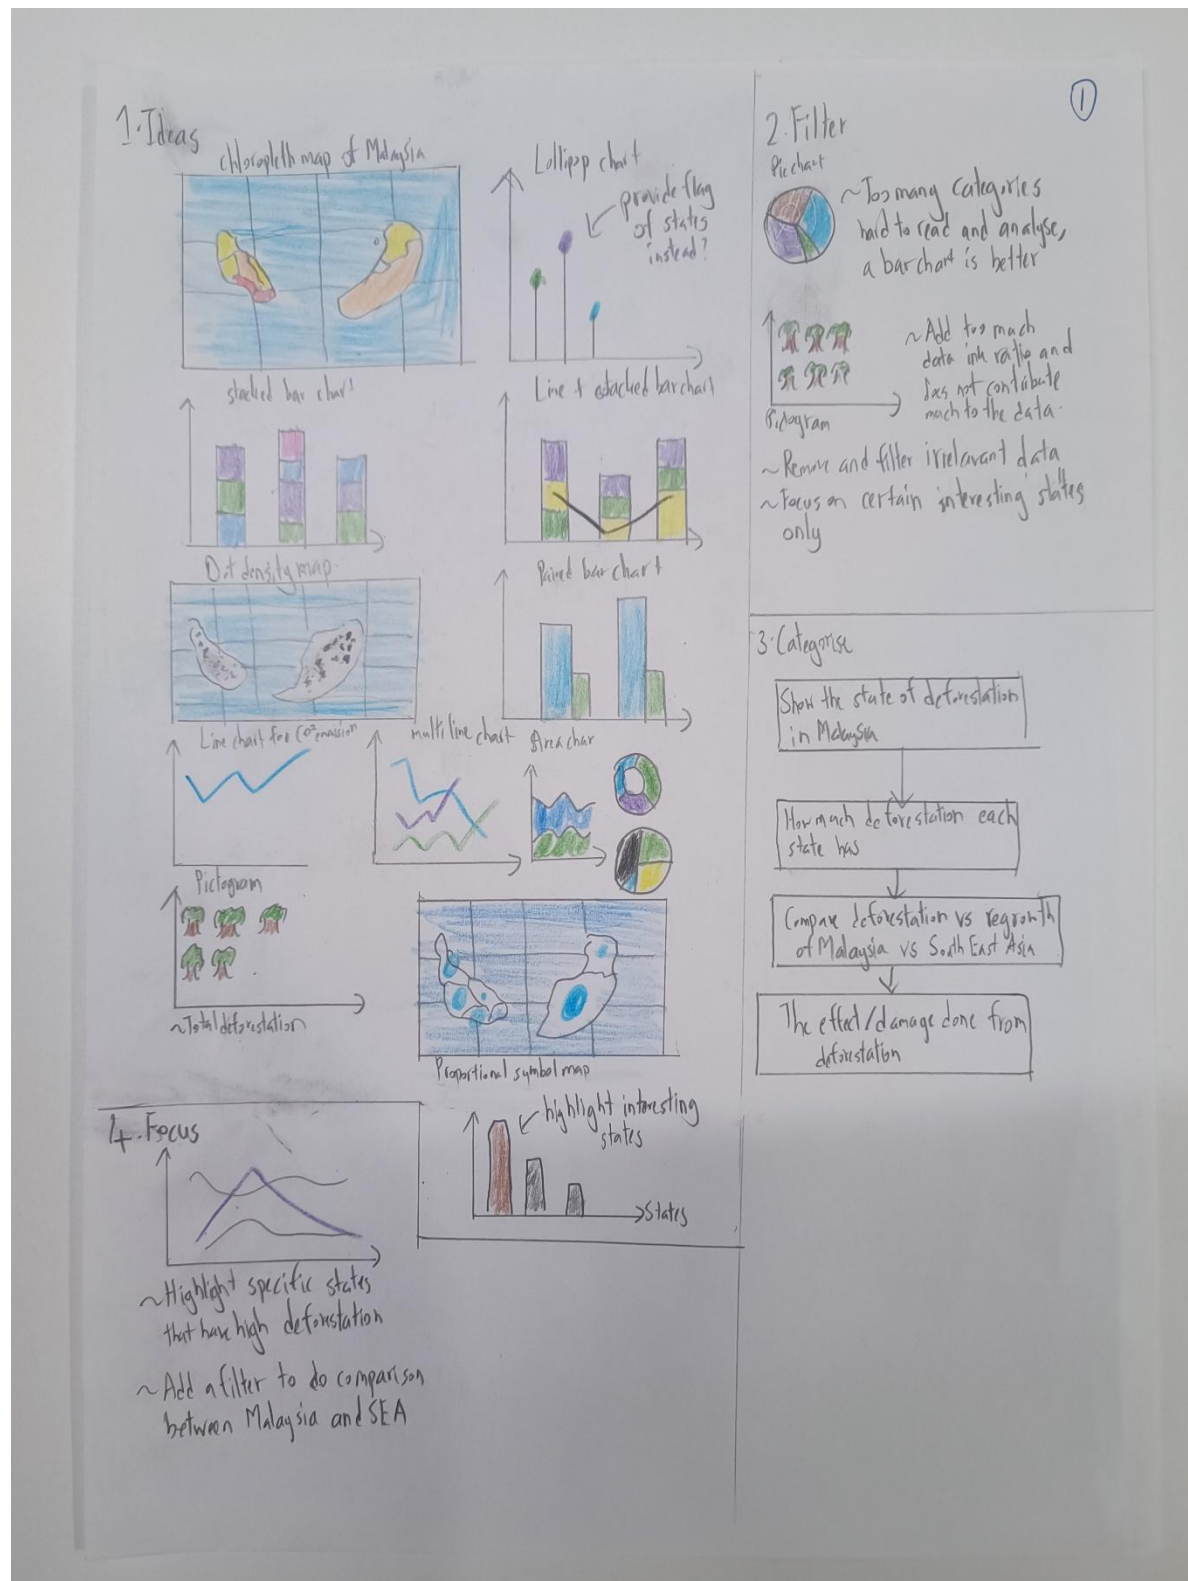 1
1.Ideas
chloropleth map of Malaysia
Lollipop chart
provide flag
of states
instead?
stacked bar chart
Line + stacked bar chart
Dot density map
Paired bar chart
Line chart for CO² emission
multi line chart
Area char
Pictogram
~Total deforestation
Proportional symbol map
2.Filter
Pie chart
~Too many categories
hard to read and analyse,
a bar chart is better
~Add too much
data ink ratio and
does not contribute
much to the data.
Pictogram
~Remove and filter irrelavant data
~Focus on certain interesting states
only
3.Categorise
Show the state of deforestation
in Malaysia
How much deforestation each
state has
Compare deforestation vs regrowth
of Malaysia vs South East Asia
The effect/damage done from
deforestation
4.Focus
highlight interesting
states
States
~Highlight specific states
that have high deforestation
~Add a filter to do comparison
between Malaysia and SEA